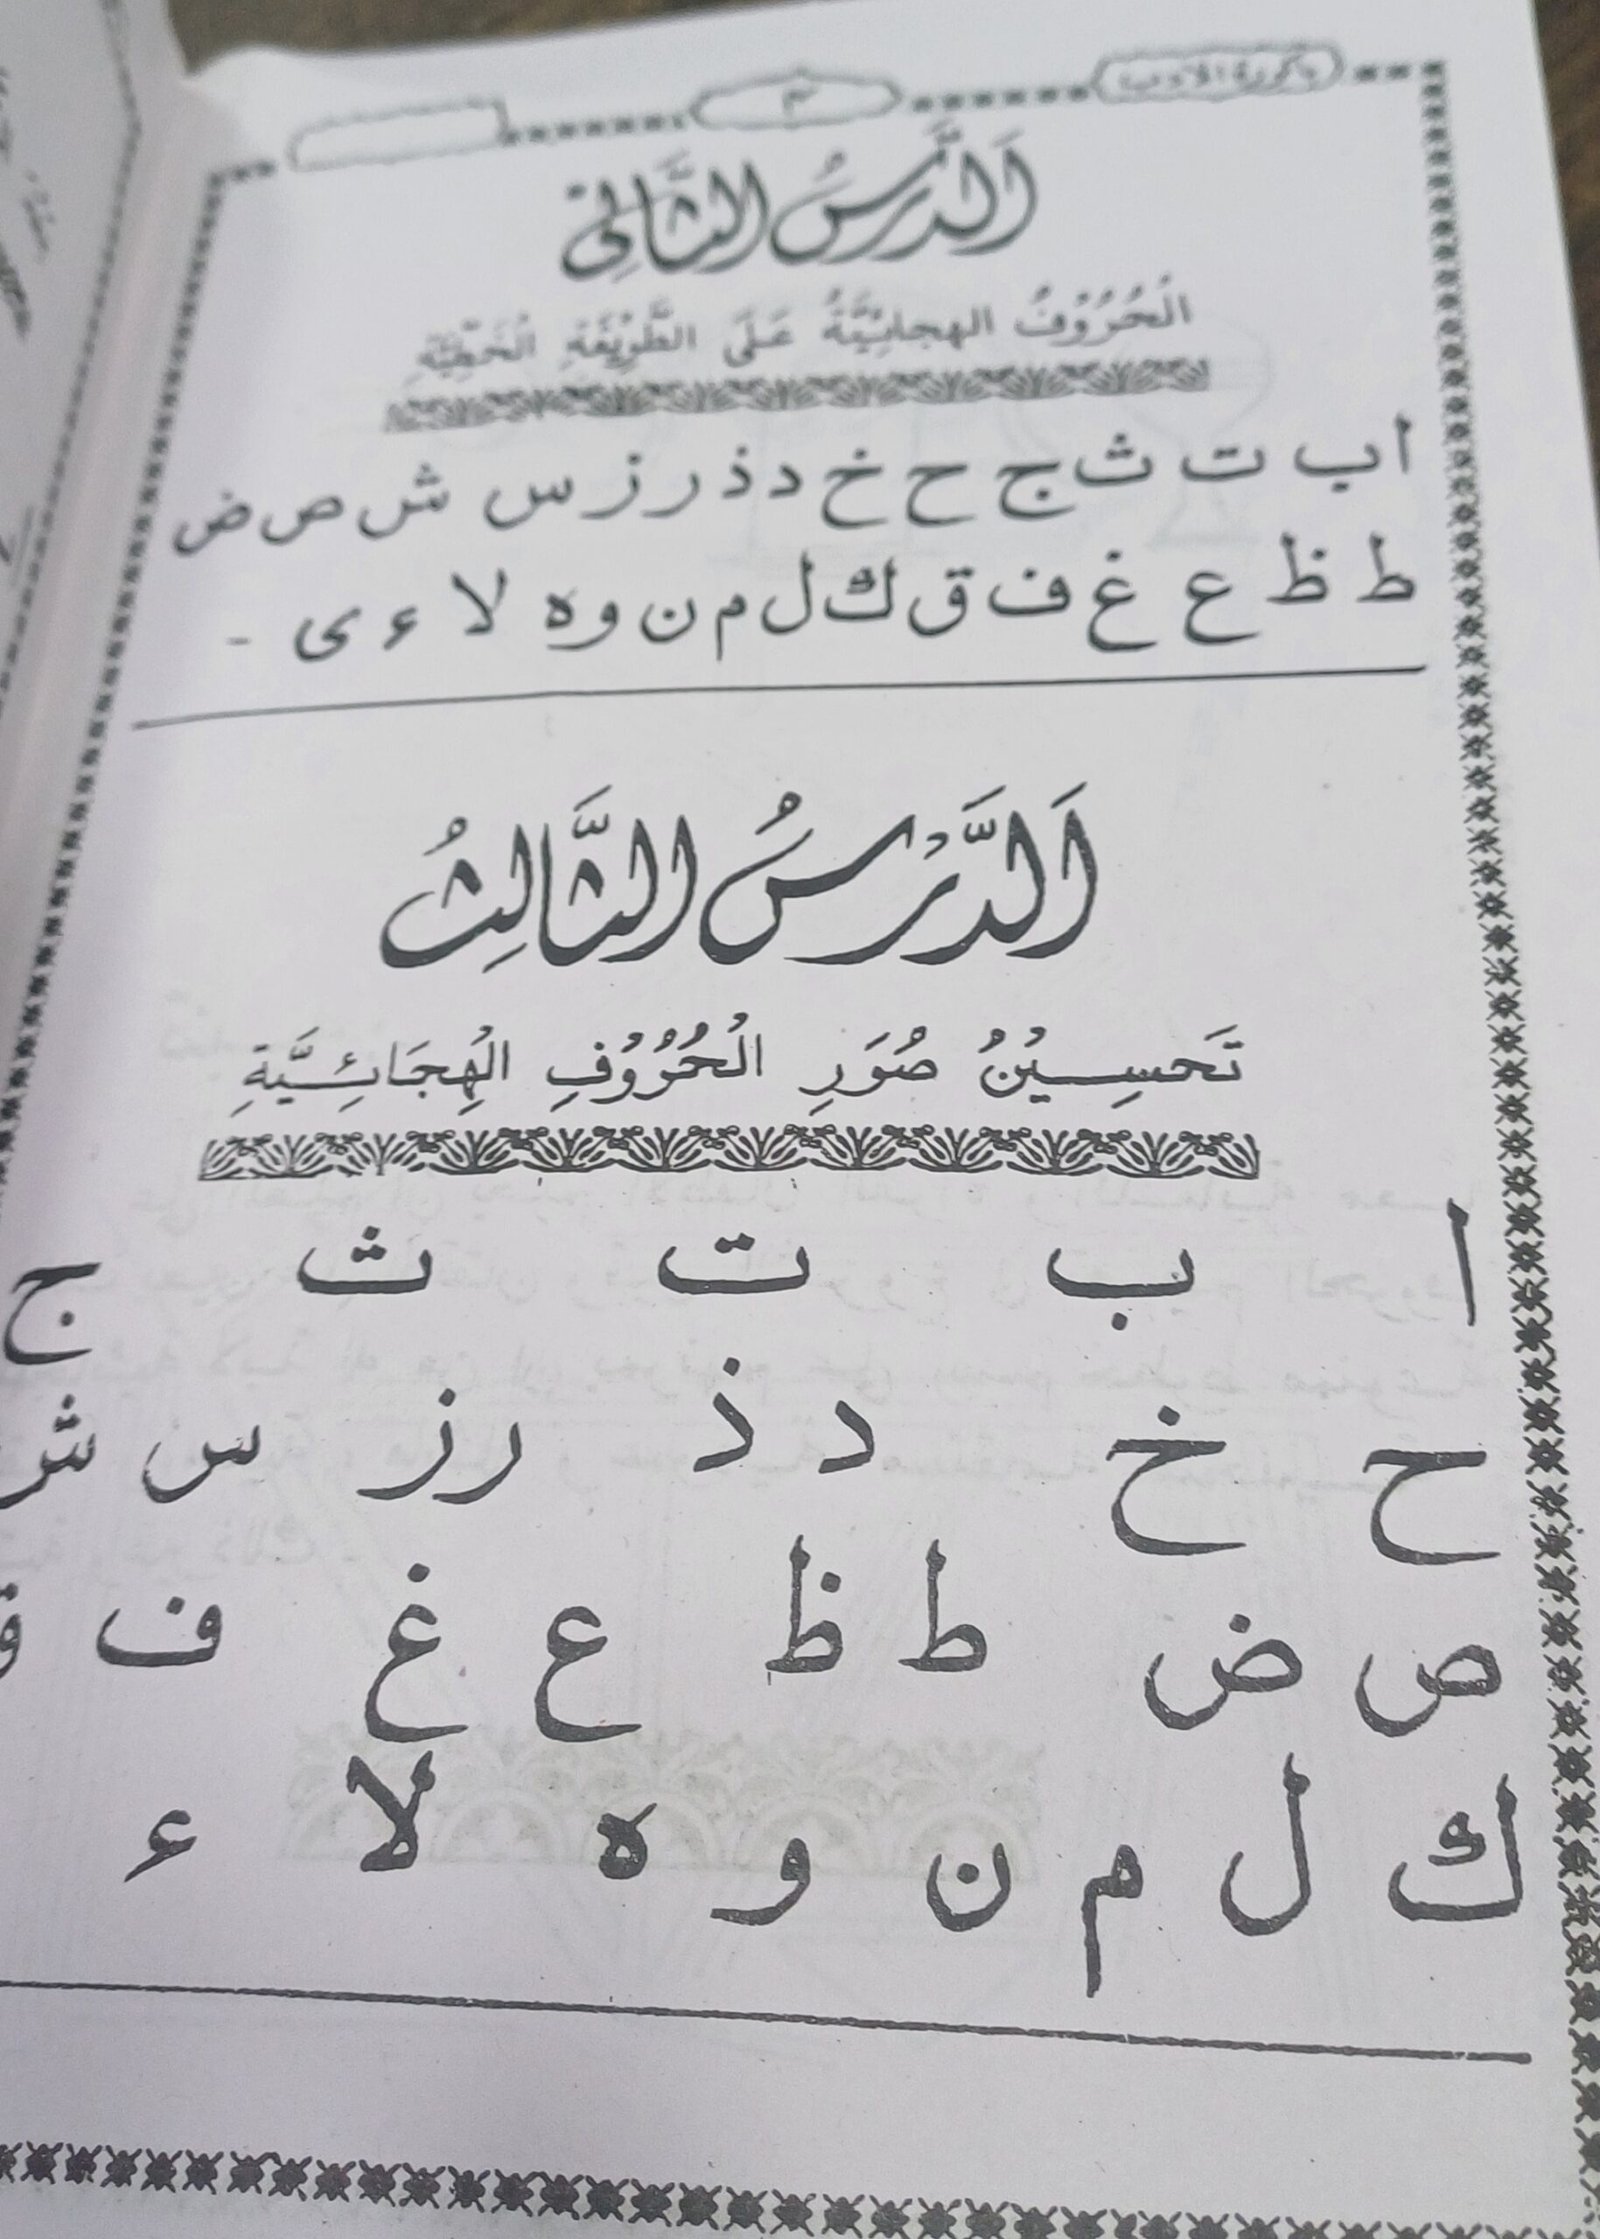 باكورة الادب
٣
اَلدَّرْسُ الثَّانِي
الْحُرُوْفُ الهجائِيَّةُ عَلَى الطَّرِيْقَةِ الْخَطِّيَّةِ
ا ب ت ث ج ح خ د ذ ر ز س ش ص ض
ط ظ ع غ ف ق ك ل م ن و ه لا ء ى -
اَلدَّرْسُ الثَّالِثُ
تَحسِيْنُ صُوَرِ الْحُرُوْفِ الْهِجَائِيَّةِ
ا ب ت ث ج
ح خ د ذ ر ز س ش
ص ض ط ظ ع غ ف ق
ك ل م ن و ه لا ء